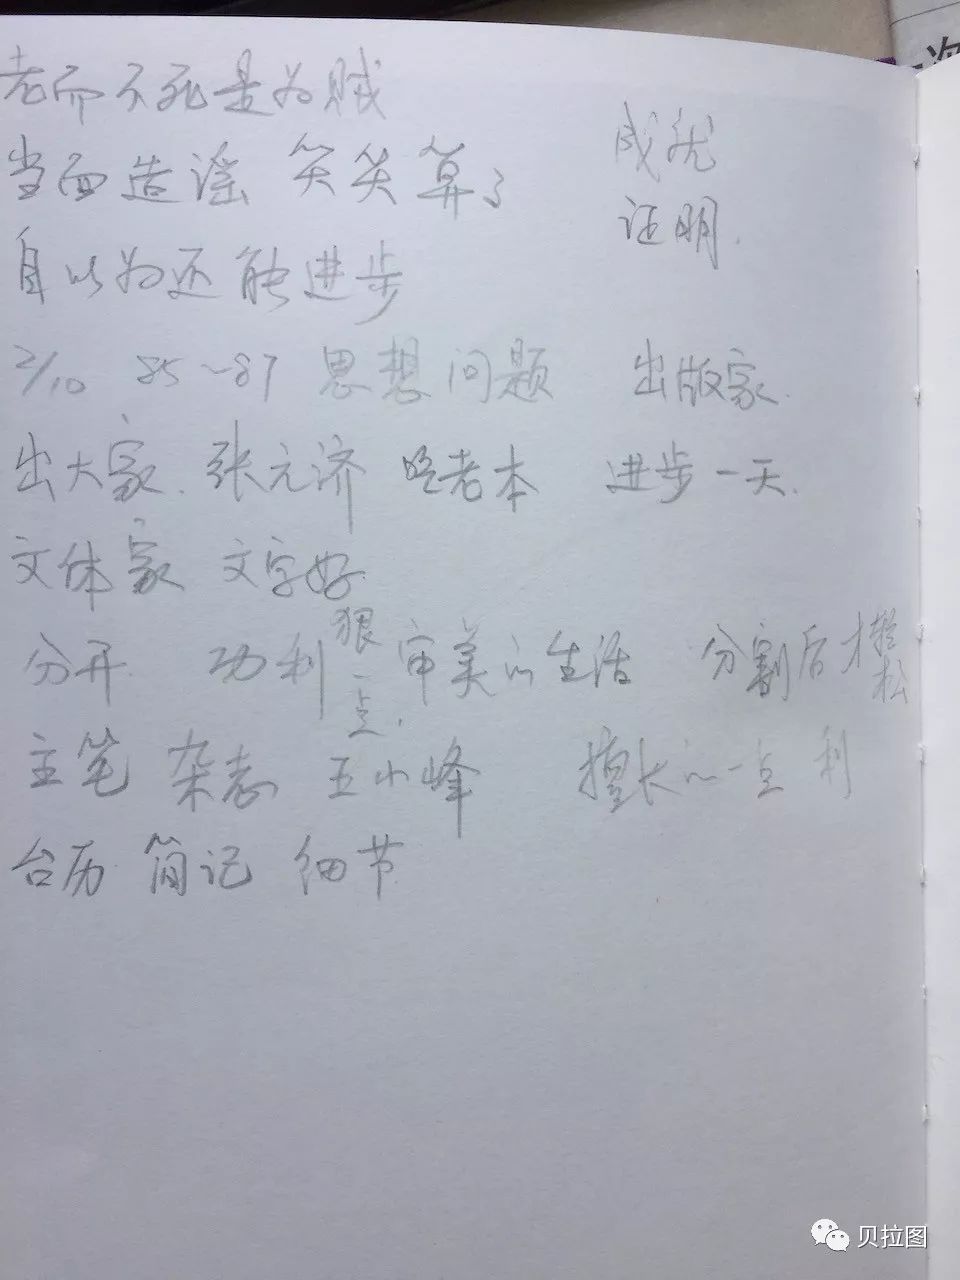 老而不死是为贼
当面造谣 笑笑算了
成就
证明.
自以为还能进步
2/10 85~87 思想问题 出版家.
出大家. 张元济 吃老本 进步一天.
文体家 文字好.
分开. 功利 狠一点. 审美的生活 分割后才轻松
主笔 杂志 王小峰 擅长的一点 利
台历 简记 细节
贝拉图